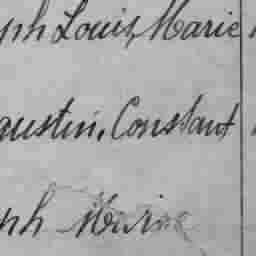 ph Louis, Marie
gustin, Constant
ph Marie